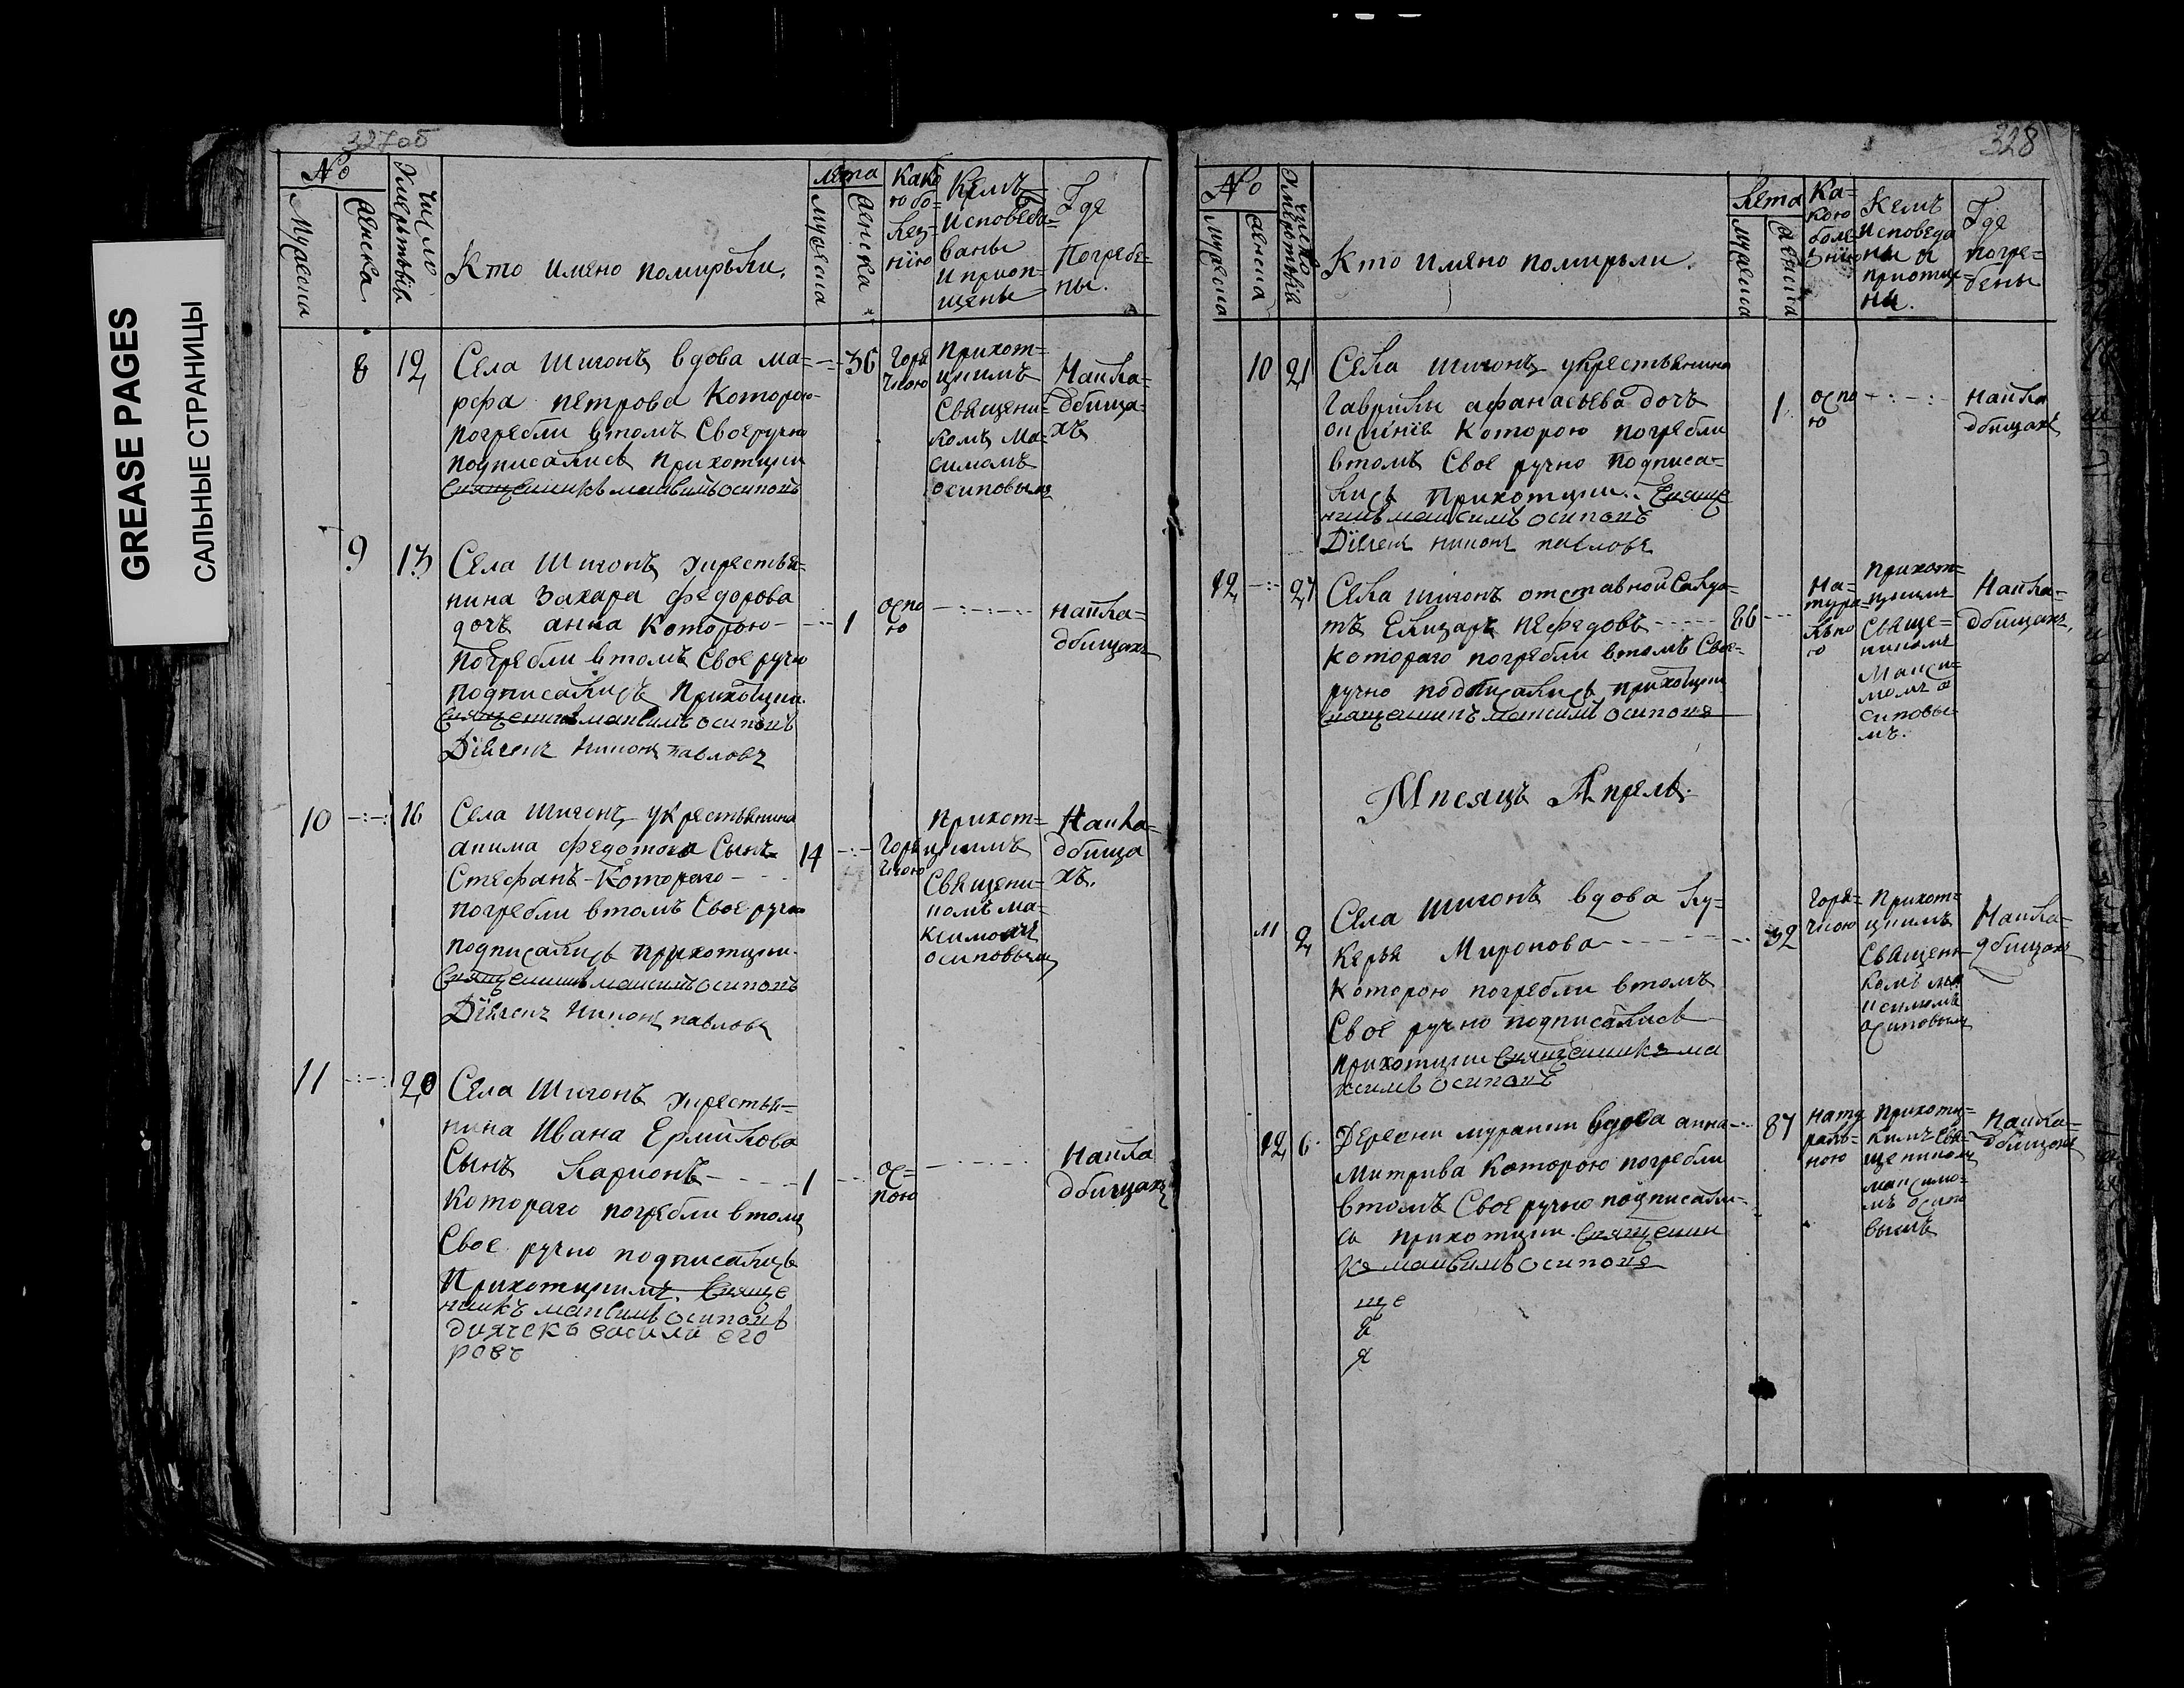 GREASE PAGES
САЛЬНЫЕ СТРАНИЦЫ
327об
№
Мужеска
Женска
Число Умертвiя
Кто имено помирьли.
лета
мужеска
женска
Како
ю бо=
лез=
нiю
Кемъ
исповеда=
ваны
и приоп=
щены
Где
Погребе=
ны.
8
12
Села Шигонъ вдова ма=
рфа петрова которою
погребли втомъ своеручно
подписались прихотцкии
священикъ максимъ осиповъ
36
Горя
чкою
прихот=
цкимъ
Священи=
комъ Ма=
симомъ
осиповымъ
Накла=
дбища=
хъ
9
13
Села Шигонъ укрестья=
нина Захара Федорова
дочъ анна которою
погребли втомъ Свое ручно
подписались прихотцкии.
священикъ максимъ осиповъ
Дiяченъ никонъ павловъ
1
оспо
ю
накла=
дбищахъ
10
16
Села Шигонъ укрестьянина
акима федотова Сынъ
Стефанъ Котораго
погребли втомъ Свое ручно
подписались прихотцкии.
священикъ максимъ осиповъ
Дiяченъ никонъ павловъ
14
Горя
чкою
прихот=
цкимъ
Священи=
комъ ма=
ксимомъ
осиповымъ
Накла=
дбища
хъ.
11
20
Села Шигонъ укрестья=
нина Ивана Ермилова
Сынъ Ларионъ
1
Котораго погребли втомъ
Свое ручно подписались
Прихотцкимъ. Свяще
никъ максимъ осиповъ
дьячекъ василй его
ровъ
ос=
пою
накла
дбищахъ
328
№
мужеска
женска
число Умертвiя
Кто имяно помирьли.
Лета
мужеска
женска
Ка=
кою
боле=
знию
Кемъ
исповеда
ны и
приотще=
ны.
Где
погре=
бены
10
21
Села Шигонъ укрестьянина
Гаврилы афанасьева дочъ
которою погребли
втомъ Свое ручно подписа=
лись прихотцкии. Свяще
никъ максимъ осиповъ
Дiяченъ никонъ павловъ
1
оспо
ю
накла
дбищахъ
12
27
Села шигонъ отставной Салда=
тъ Елизаръ нефедовъ
котораго погребли втомъ Свое=
ручно подписались прихотцкии
священикъ максимъ осиповъ
86
На=
тура=
льно
ю
прихот=
цкимъ
Свяще=
никомъ
Макси=
момъ о
сиповы=
мъ.
Накла=
дбищахъ.
Мпсяцъ Апрель.
11
2
Села шигонъ вдова лу=
керья Миронова
Которою погребли втомъ
Свое ручно подписались
прихотцкии Священикъ ма
ксимъ осиповъ
32
Горя=
чкою
прихот=
цкимъ
Священи
комъ ма
ксимомъ
осиповымъ
Накла=
дбищахъ
12
6
Деревни муранки вдова анна
митрива которою погребли
втомъ Свое ручно подписали=
сь прихотцкии. священи
къ максимъ осиповъ
87
нату
раль=
ною
прихотц=
кимъ Свя=
щеникомъ
максимо=
мъ осипо
вымъ
Накла=
дбищахъ